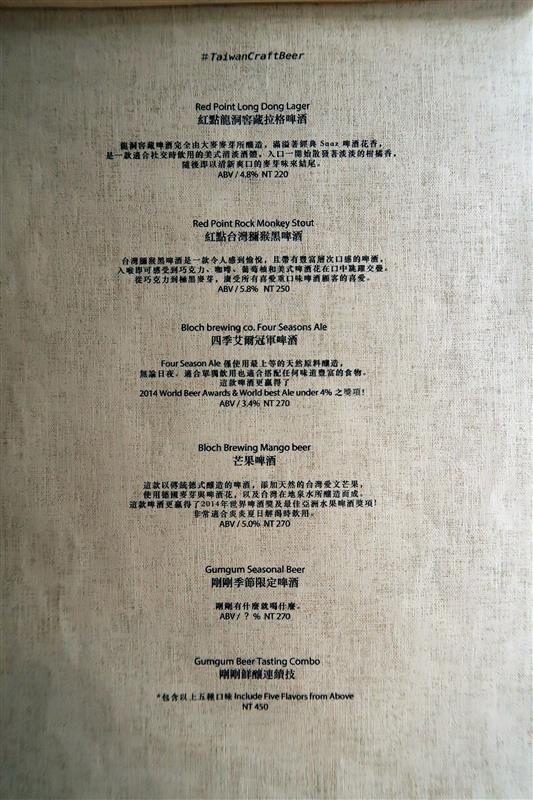 #TaiwanCraftBeer
Red Point Long Dong Lager
紅點龍洞窖藏拉格啤酒
龍洞窖藏啤酒完全由大麥麥芽所釀造，滿溢著經典 Saaz 啤酒花香，
是一款適合社交時飲用的美式清淡酒體，入口一開始散發著淡淡的柑橘香，
隨後即以清新爽口的麥芽味來結尾。
ABV / 4.8% NT 220
Red Point Rock Monkey Stout
紅點台灣獼猴黑啤酒
台灣獼猴黑啤酒是一款令人感到愉悅，且帶有豐富層次口感的啤酒，
入喉即可感受到巧克力、咖啡、葡萄柚和美式啤酒花在口中跳躍交疊。
從巧克力到極黑麥芽，廣受所有喜愛重口味啤酒顧客的喜愛。
ABV / 5.8% NT 250
Bloch brewing co. Four Seasons Ale
四季艾爾冠軍啤酒
Four Season Ale 僅使用最上等的天然原料釀造，
無論日夜。適合單獨飲用也適合搭配任何味道豐富的食物。
這款啤酒更贏得了
2014 World Beer Awards & World best Ale under 4% 之獎項！
ABV / 3.4% NT 270
Bloch Brewing Mango beer
芒果啤酒
這款以傳統德式釀造的啤酒，添加天然的台灣愛文芒果，
使用德國麥芽與啤酒花，以及台灣在地泉水所釀造而成。
這款啤酒更贏得了2014年世界啤酒獎及最佳亞洲水果啤酒獎項！
非常適合炎炎夏日解渴時飲用。
ABV / 5.0% NT 270
Gumgum Seasonal Beer
剛剛季節限定啤酒
剛剛有什麼就喝什麼。
ABV / ? % NT 270
Gumgum Beer Tasting Combo
剛剛鮮釀連續技
*包含以上五種口味 Include Five Flavors from Above
NT 450